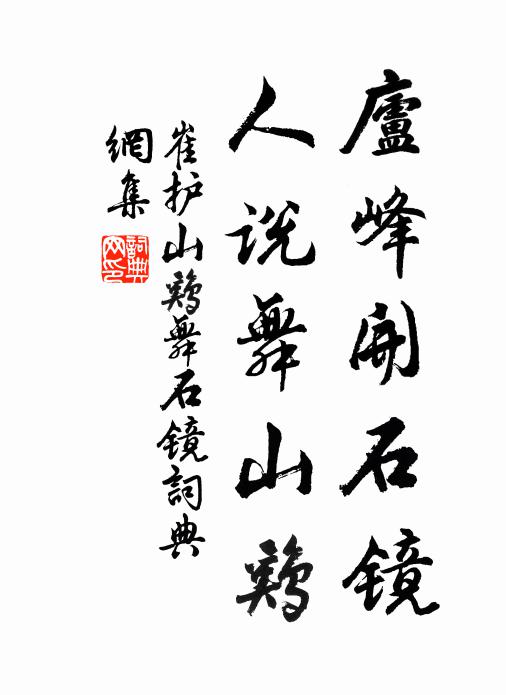 廬峰開石镜
人说舞山鷄
崔护山鷄舞石镜詞典
網集
詞典
网印